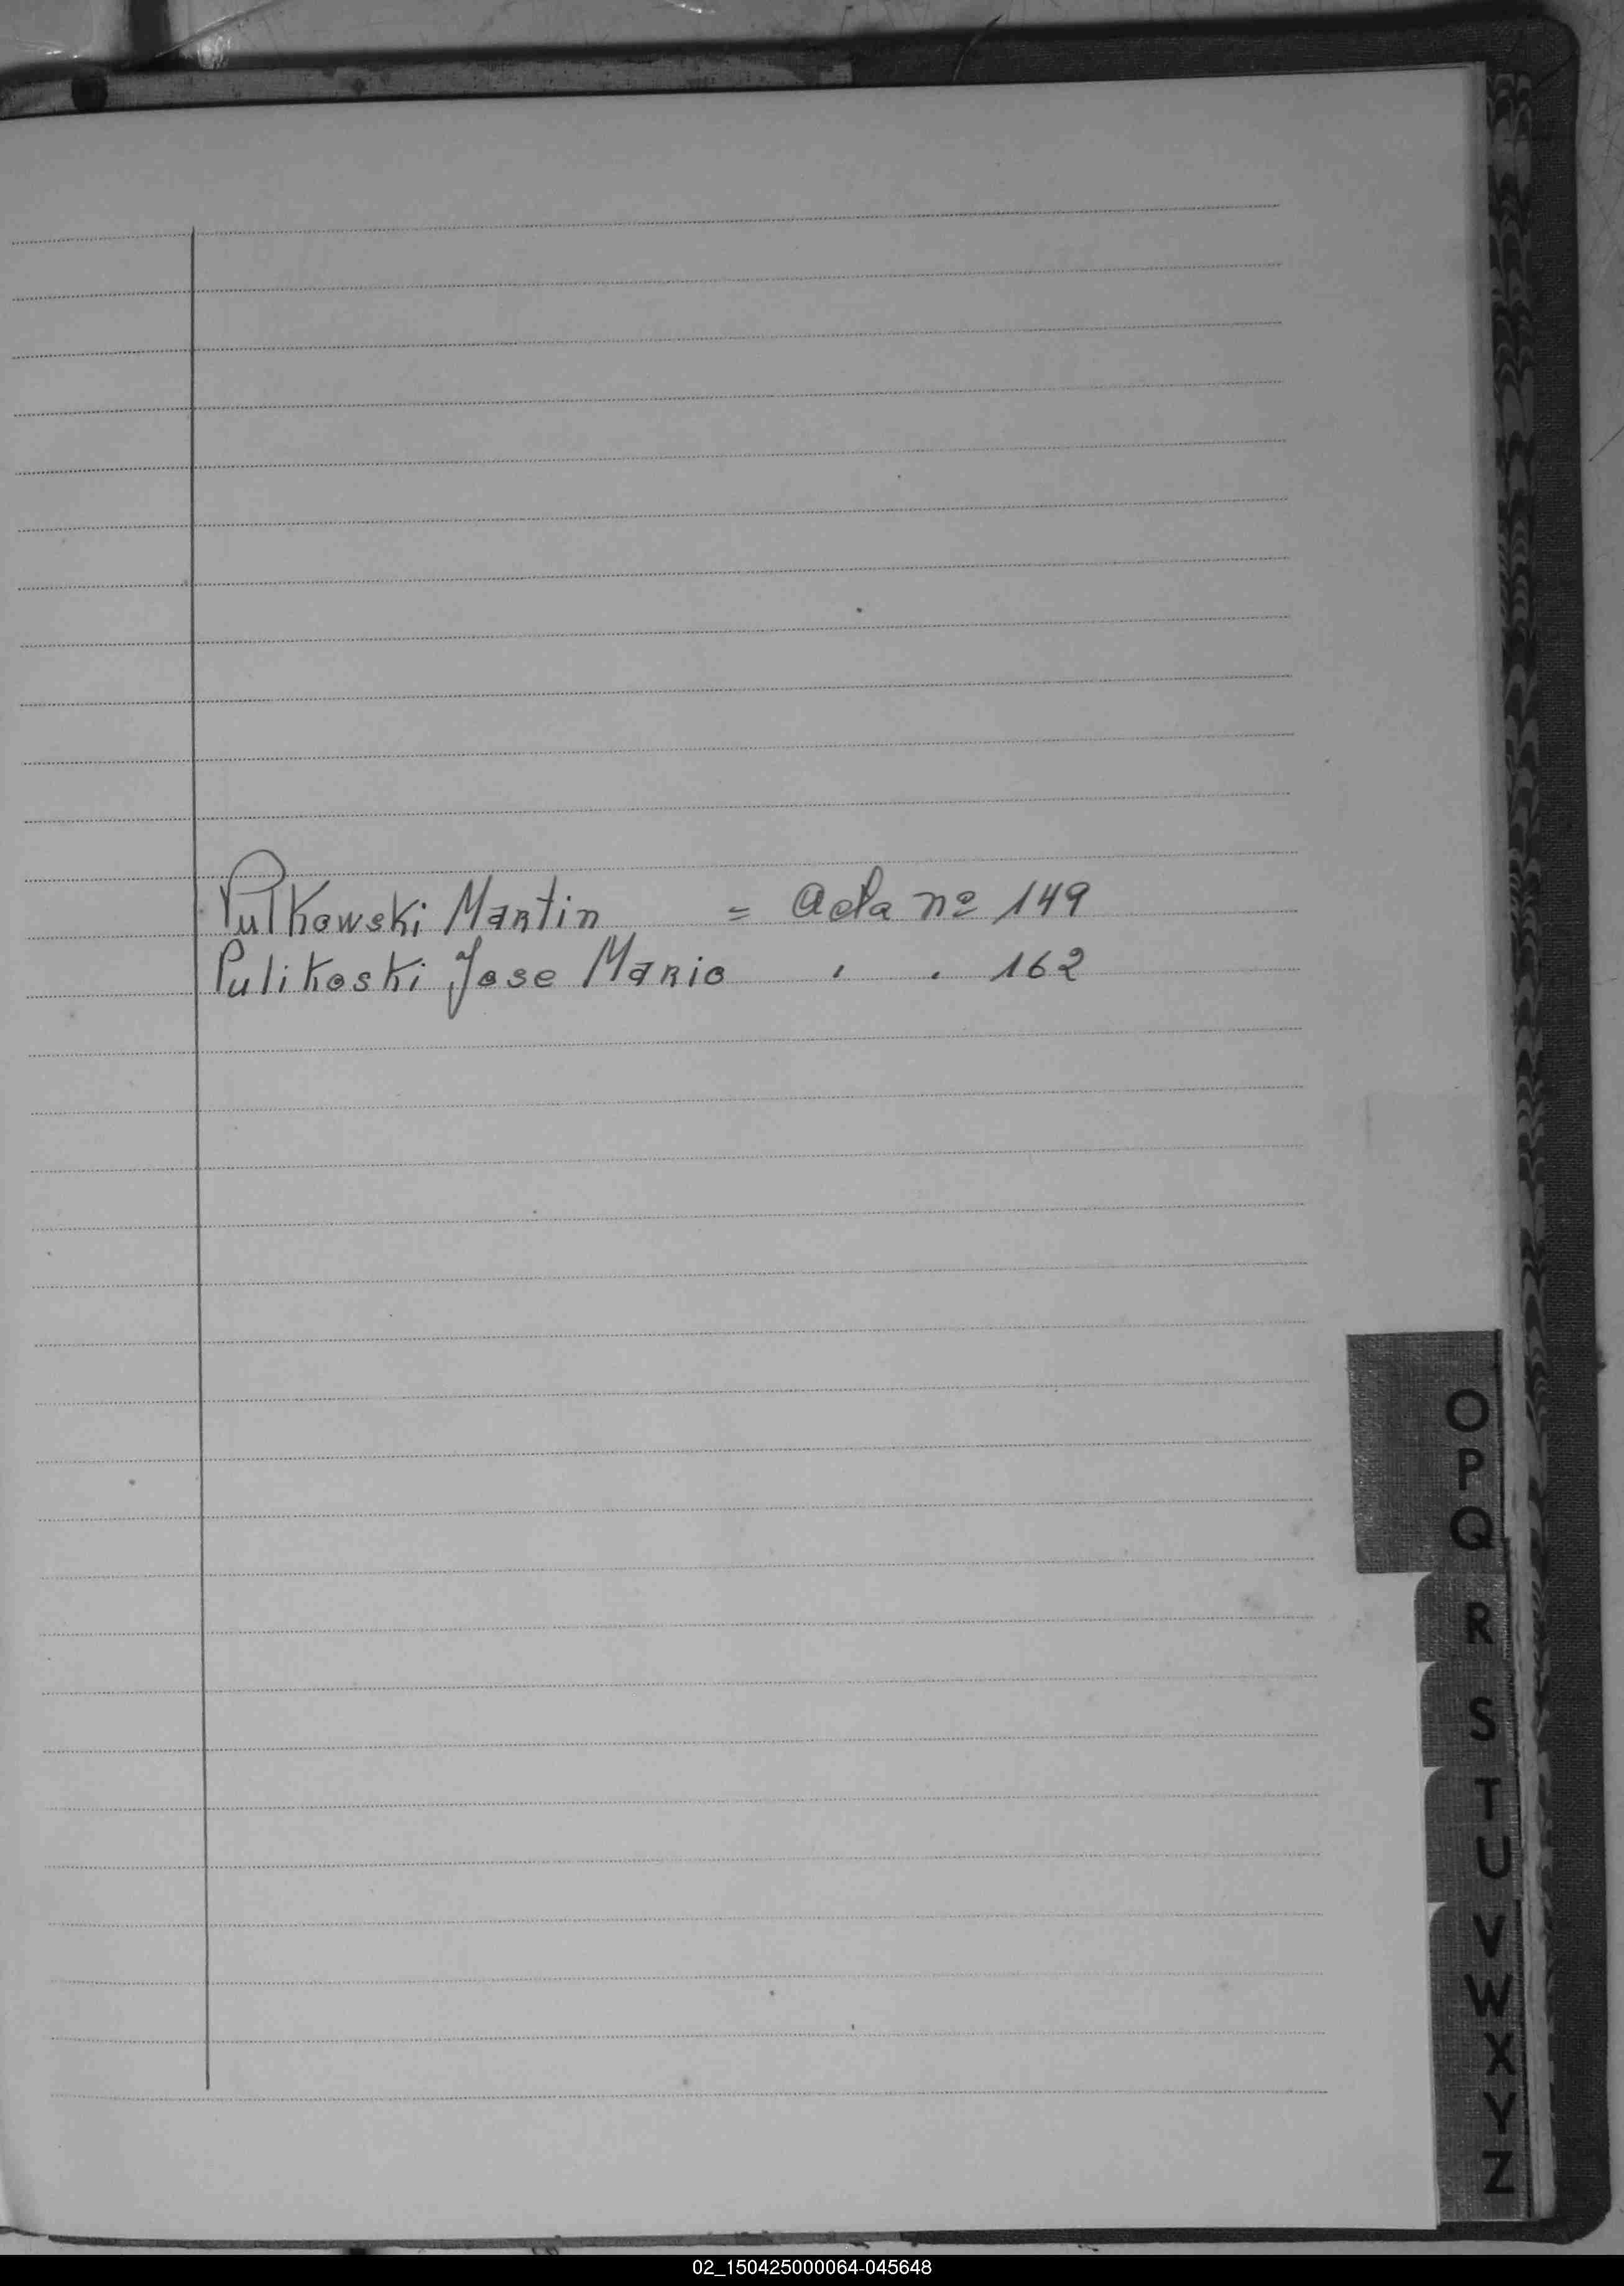 Pulkowski Martin = Acta nº 149
Pulikoski Jose Mario , . 162
O
P
Q
R
S
T
U
V
W
X
Y
Z
02_150425000064-045648